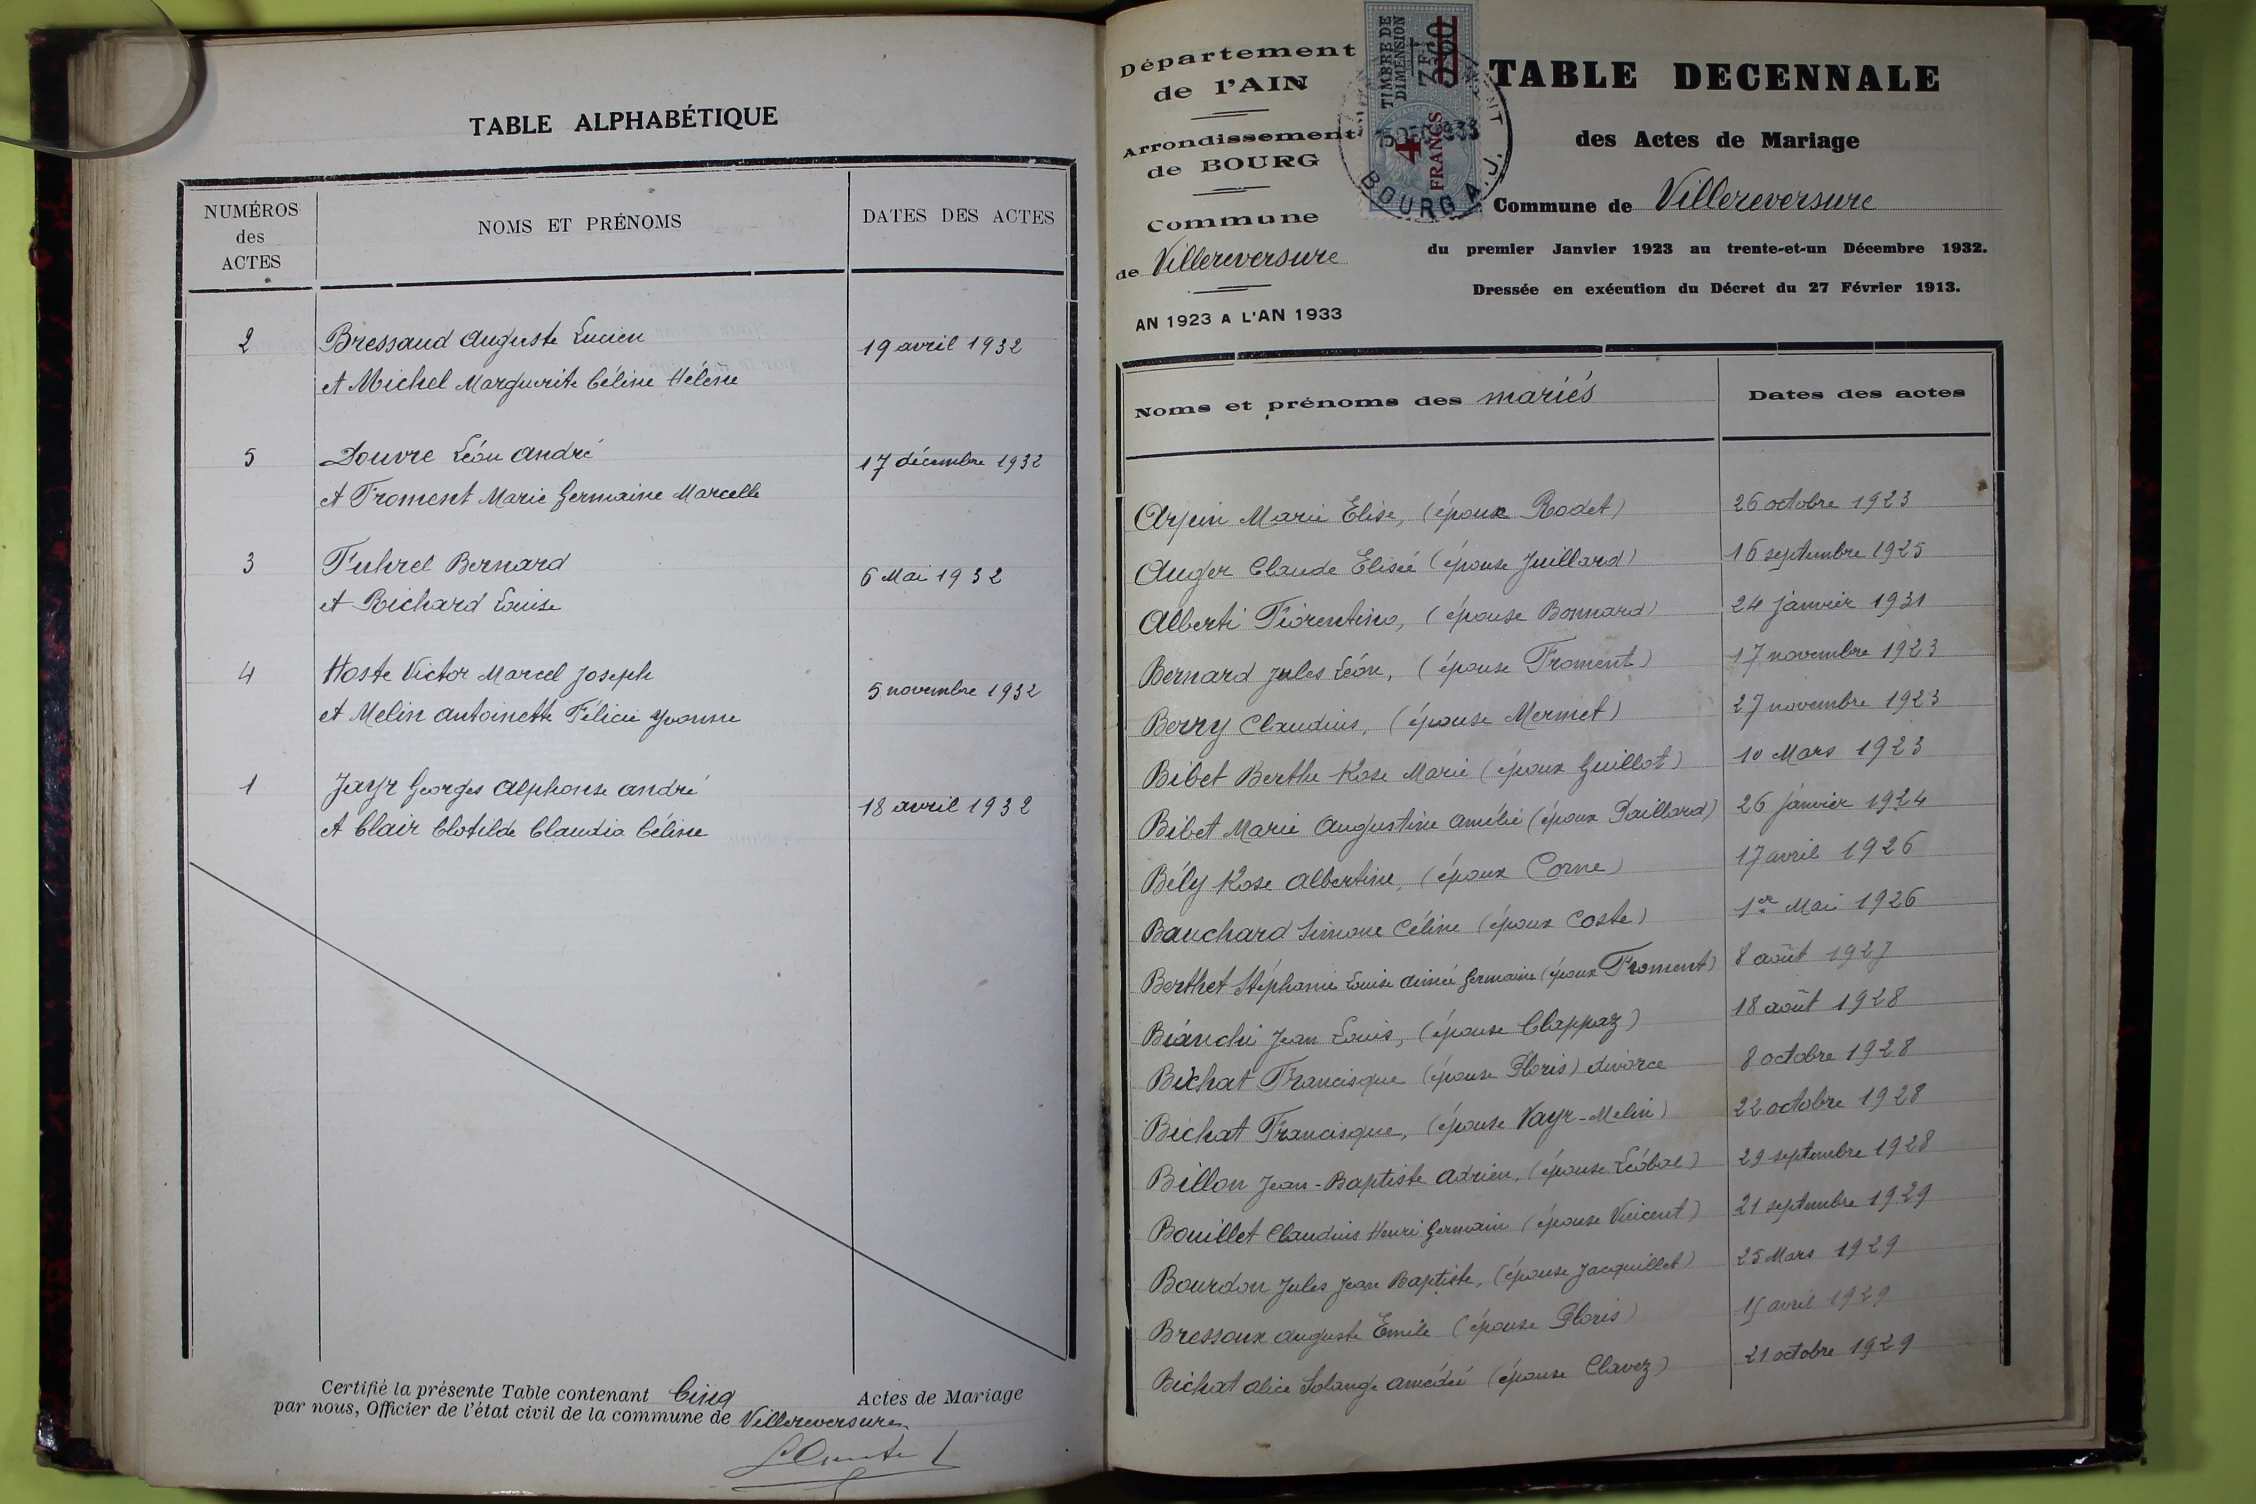 TABLE ALPHABÉTIQUE
NUMÉROS
des
ACTES
NOMS ET PRÉNOMS
DATES DES ACTES
2 Bressaud Auguste Lucien
et Michel Marguerite Céline Hélène
19 avril 1932
5 Douvre Léon André
et Froment Marie Germaine Marcelle
17 décembre 1932
3 Tuhrel Bernard
et Richard Louise
6 Mai 1932
4 Hoste Victor Marcel Joseph
et Melin Antoinette Félicie Yvonne
5 novembre 1932
1 Jayr Georges Alphonse André
et Clair Clotilde Claudia Céline
18 avril 1932
Certifié la présente Table contenant Cinq Actes de Mariage
par nous, Officier de l'état civil de la commune de Villereversure
Département
de l'AIN
Arrondissement
de BOURG
Commune
de Villereversure
AN 1923 A L'AN 1933
TIMBRE DE
DIMENSION
4
FRANCS
1933
BOURG A.J.
TABLE DECENNALE
des Actes de Mariage
Commune de Villereversure
du premier Janvier 1923 au trente-et-un Décembre 1932.
Dressée en exécution du Décret du 27 Février 1913.
Noms et prénoms des mariés
Dates des actes
Arpin Marie Elise, (époux Rodet) 26 octobre 1923
Auger Claude Elisée (épouse Juillard) 16 septembre 1925
Alberti Fiorentino, (épouse Bonnard) 24 janvier 1931
Bernard Jules Léon, (épouse Froment) 17 novembre 1923
Berry Claudius, (épouse Mermet) 27 novembre 1923
Bibet Berthe Rose Marie (époux Guillot) 10 Mars 1923
Bibet Marie Augustine Amélie (époux Paillard) 26 janvier 1924
Bély Rose Albertine, (époux Corne) 17 avril 1926
Bauchard Simone Céline (époux Coste) 1er Mai 1926
Berthet Stéphanie Louise Aimée Germaine (époux Froment) 8 août 1927
Bianchi Jean Louis, (épouse Clappaz) 18 août 1928
Bichat Francisque (épouse Ploris) divorce 8 octobre 1928
Bichat Francisque, (épouse Vayr-Melin) 22 octobre 1928
Billon Jean-Baptiste Adrien, (épouse Léobal) 29 septembre 1928
Bouillet Claudius Henri Germain (épouse Vincent) 21 septembre 1929
Bourdon Jules Jean Baptiste, (épouse Jacquillet) 25 Mars 1929
Bressoux Auguste Emile (épouse Ploris) avril 1929
Bichat Alice Solange Amédée (épouse Clavez) 21 octobre 1929